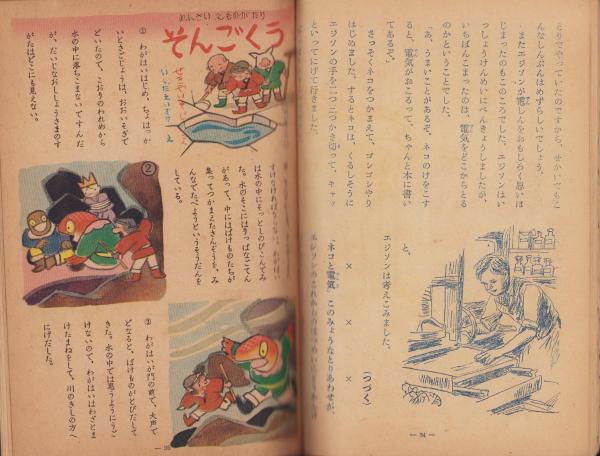 とりでやっていたのですから、せかいでもこ
んなしんぶんはめずらしいでしょう。
またエジソンが電しんをおもしろく思いは
じまったのもこのころでした。エジソンはい
っしょうけんめいにべんきょうしましたが、
いちばんこまったのは、電気をどこからとる
のかということでした。
「あ、うまいことがあるぞ。ネコのけをこす
ると、電気がおこるって、ちゃんと本に書い
てあるぞ。」
さっそくネコをつかまえて、ゴシゴシやり
はじめました。するとネコは、くるしそうに
エジソンの手を二つ三つかき切って、キャッ
といってにげて行きました。
と、
エジソンは考えこみました。
× × ×
「ネコと電気」このみょうなとりあわせが、
(つづく)
— 34 —
れんさい えものがたり
そんごくう
① わがはいはじめ、ちょはっか
いとさごじょうは、おおいそぎで
といたので、こおりのわれめから
水の中に落ちこまないですんだ
が、だいじなおししょうさまのす
がたはどこにも見えない。
②
すけなければならない。わがはい
は水の中にそっとしのびこんでみ
た。水のそこには、りっぱなごてん
があって、中にはばけものたちが
集ってつかまえたさんぞうを、み
んなでたべようというそうだんを
している。
③ わがはいが門の前で、大声で
どなると、ばけものがとびだして
きた。水の中では思うようにうご
けないので、わがはいはわざとま
けたまねをして、川のきしの方へ
にげだした。
— 35